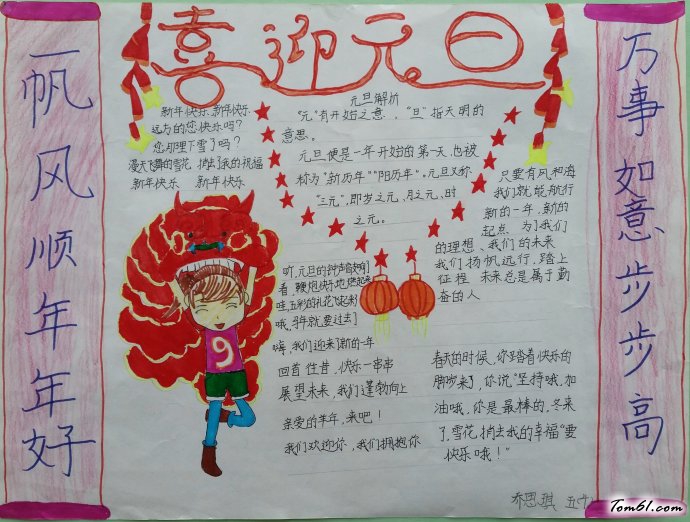 喜迎元旦
一帆风顺年年好
万事如意步步高
新年快乐,新年快乐
远方的您快乐吗?
您那里下雪了吗?
漫天飞舞的雪花,捎去了我的祝福
新年快乐 新年快乐
元旦解析
"元"有开始之意,"旦"指天明的
意思。
元旦便是一年开始的第一天,也被
称为"新历年""阳历年"。元旦又称
"三元",即岁之元、月之元、时
之元。
只要有风和海
我们就能航行
新的一年,新的
起点,为了我们
的理想、我们的未来
我们扬帆远行,踏上
征程 未来总是属于勤
奋的人
听,元旦的钟声敲响了
看,鞭炮快乐地燃起来
哇,五彩的礼花飞起来了
哦,马年就要过去了
嗨,我们迎来了新的一年
回首往昔,快乐一串串
展望未来,我们蓬勃向上
亲爱的羊年,来吧!
我们欢迎你,我们拥抱你
春天的时候,你踏着快乐的
脚步来了,你说"坚持哦,加
油哦,你是最棒的,冬来
了,雪花,捎去我的幸福"要
快乐哦!"
9
乔思琪 五
Tom61.com